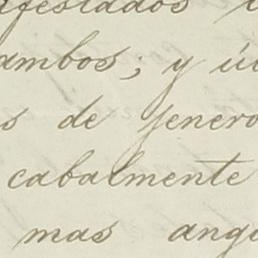 ifestados
ambos; y ú
s de jenero
cabalmente
mas ang